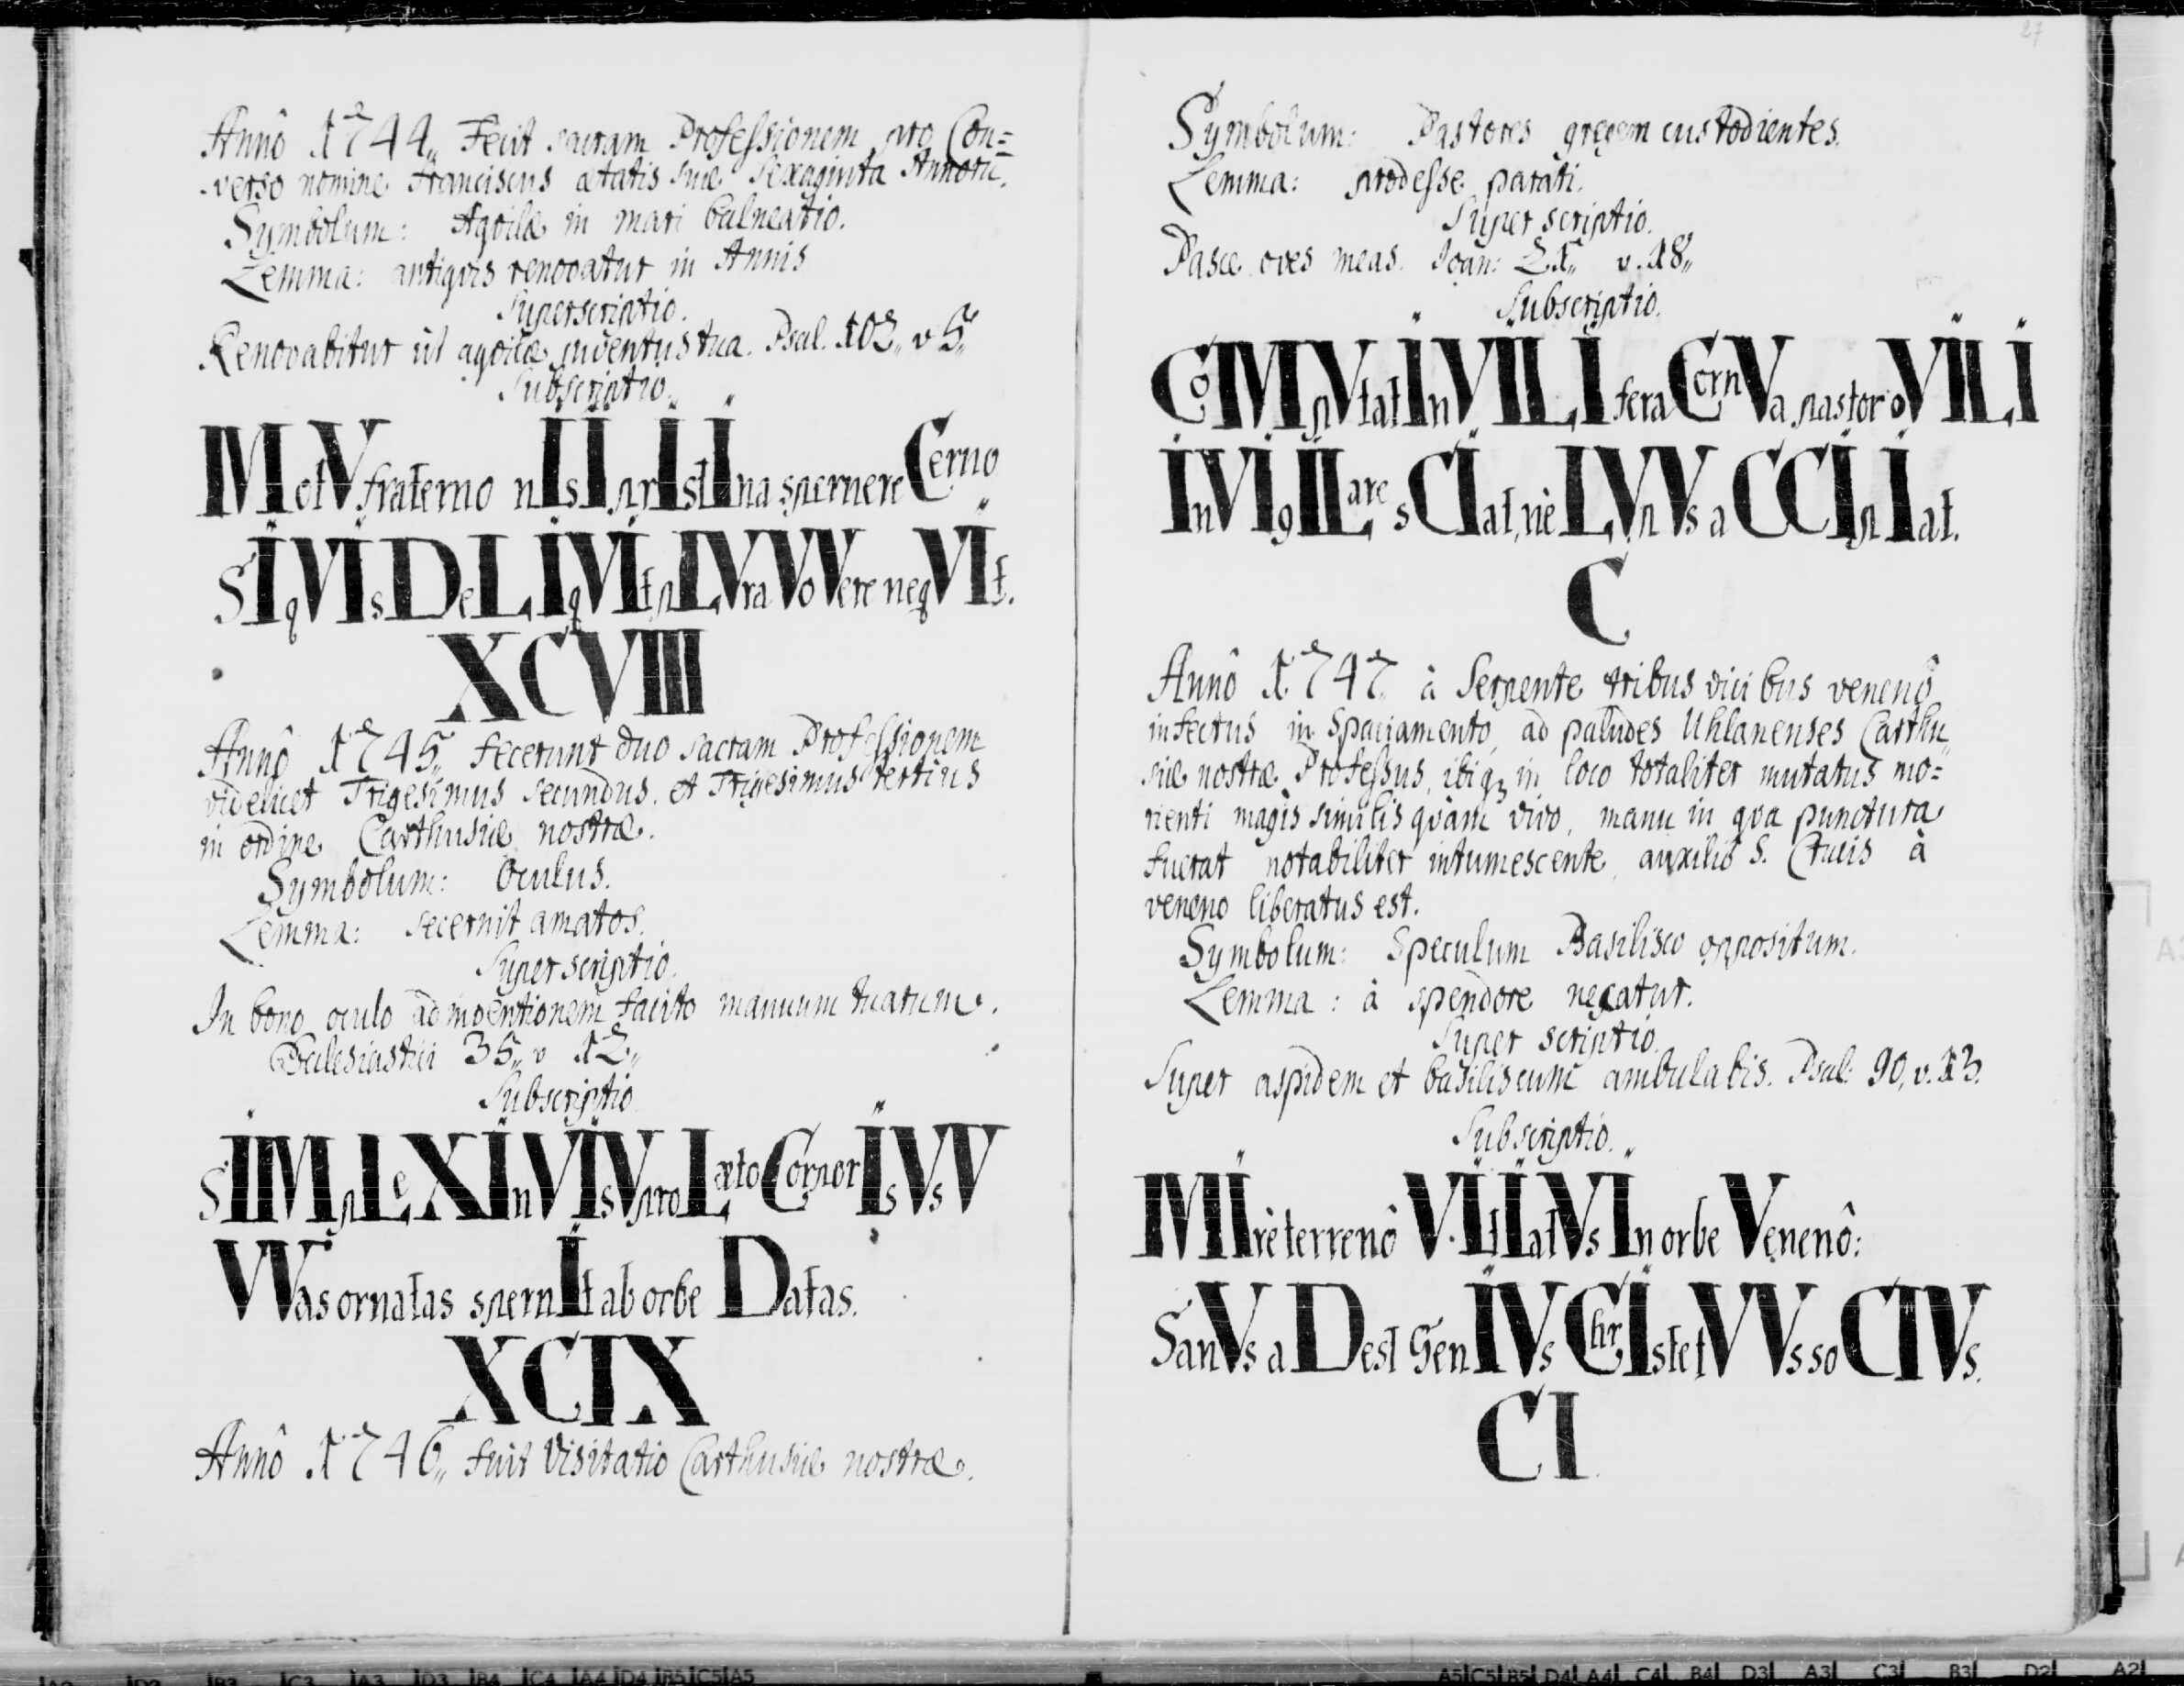 Annô 1744,, Fecit sacram Professionem pro Con=
verso nomine Franciscus ætatis suæ Sexaginta Annorū.
Symbolum: Aqvilæ in mari balneatio.
Lemma: antiqvis renovatur in Annis
Superscriptio.
Renovabitur ut aqvilæ juventus tua. Psal. 102,, v 5,,
Subscriptio.
MotV fraterno nIsI prIstIna spernere Cerno
SI qVIs DeLIqVIt pLVra VoVere neqVIt.
XCVIII
Annô 1745,, fecerunt duo sacram Professionem
videlicet Trigesimus secundus, et Trigesimus tertius
in ordine Carthusiæ nostræ.
Symbolum: Oculus.
Lemma: secernit amatos.
Super scriptio.
In bono oculo ad inventionem facito manuum tuarum.
Ecclesiastici 35,, v 12,,
Subscriptio
SIMpLeX InVIsV pro Læto CorporIs VsV
VVas ornatas spernIt ab orbe Datas.
XCIX
Annô 1746,, fuit Visitatio Carthusiæ nostræ.
27
Symbolum: Pastores gregem custodientes.
Lemma: prodesse parati.
Super scriptio.
Pasce oves meas. Joan: 21,, v. 18,,
Subscriptio.
CoMpVtat In VILI fera CornVa pastor oVILI
InVIgILare sCIat, nè LVpVs aCCIpIat.
C
Annô 1747,, à Serpente tribus vicibus venenô
infectus in Spaciamento, ad paludes Uhlanenses Carthu,,
siæ nostræ Professus, ibiqz in loco totaliter mutatus mo=
rienti magis similis qvàm vivo, manu in qva punctura
fuerat notabiliter intumescente, auxilio S. Crucis à
veneno liberatus est.
Symbolum: Speculum Basilisco oppositum.
Lemma: à spendore necatur.
Super scriptio.
Super aspidem et basiliscum ambulabis. Psal: 90, v. 13.
Subscriptio.
MIrè terrenô VItIatVs In orbe Venenô:
SanVs aDest GenIVs ChrIste tVVs soCIVs.
CI